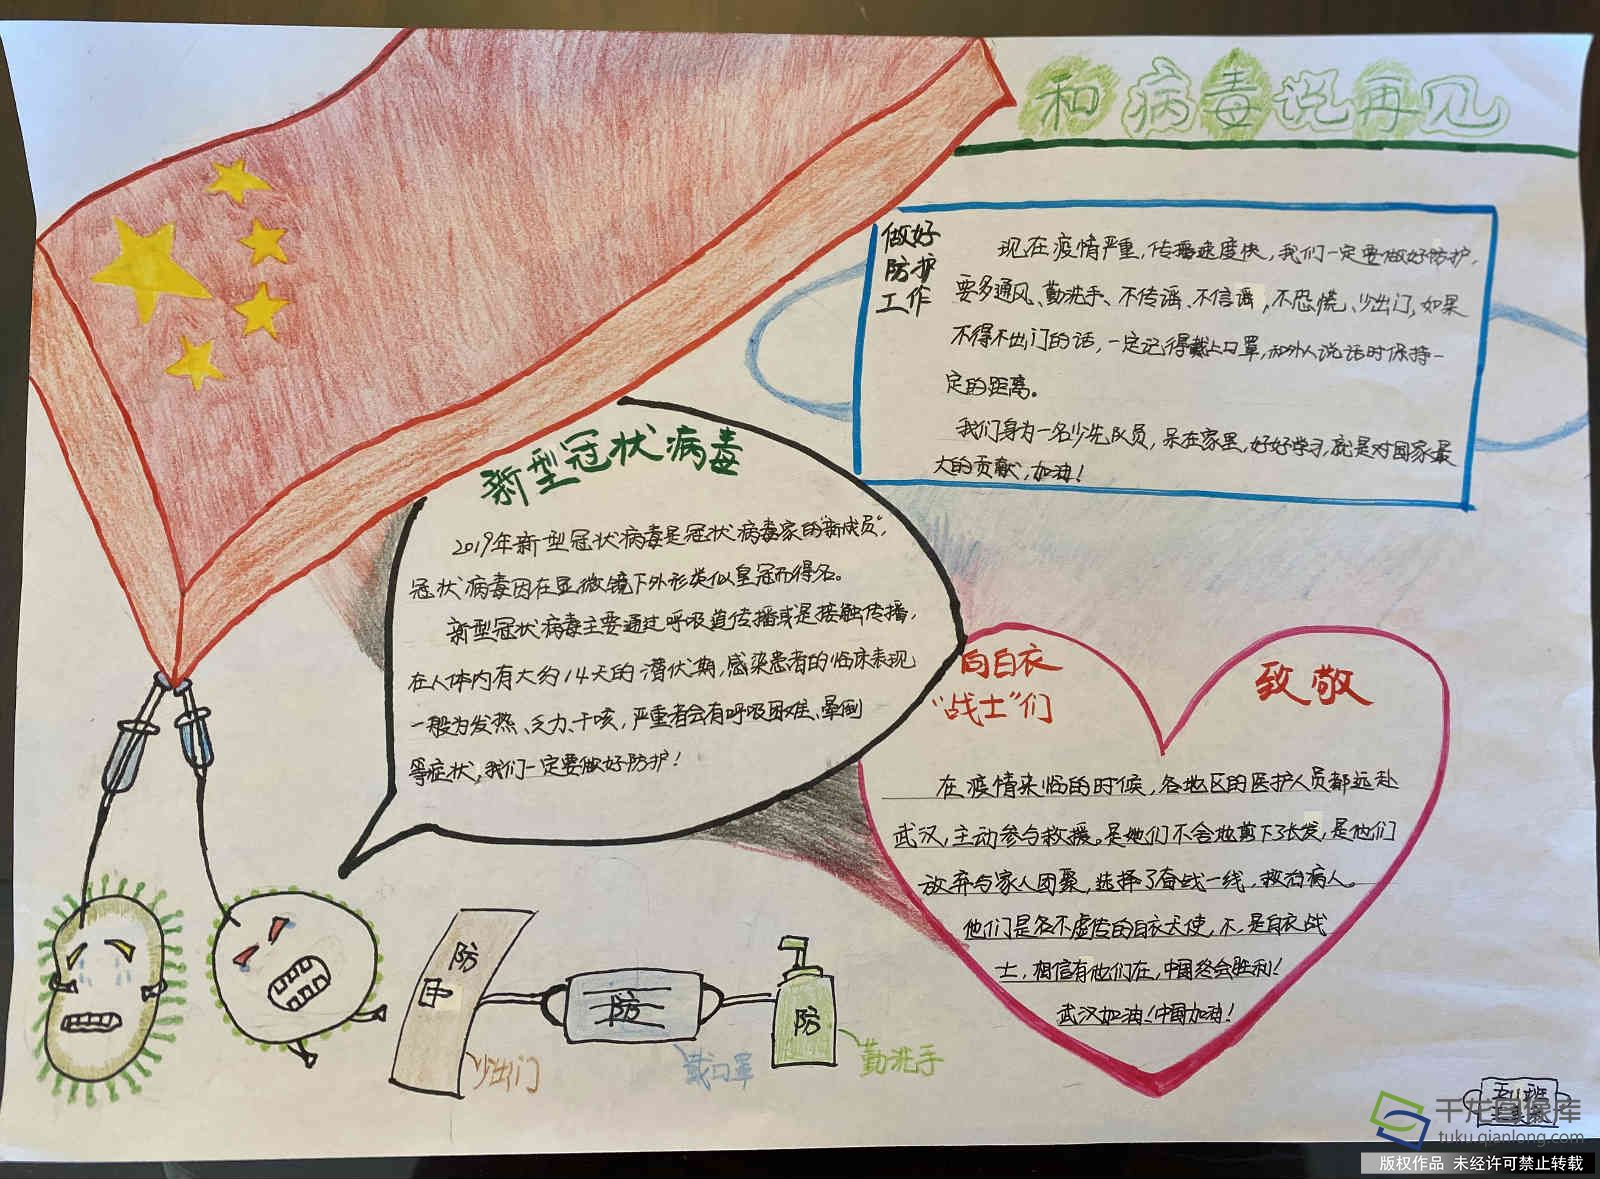 和病毒说再见
做好
防护
工作
现在疫情严重,传播速度快,我们一定要做好防护,
要多通风、勤洗手、不传谣、不信谣,不恐慌、少出门,如果
不得不出门的话,一定记得戴上口罩,和外人说话时保持一
定的距离。
我们身为一名少先队员,呆在家里,好好学习,就是对国家最
大的贡献,加油!
新型冠状病毒
2019年新型冠状病毒是冠状病毒家的"新成员",
冠状病毒因在显微镜下外形类似皇冠而得名。
新型冠状病毒主要通过呼吸道传播或是接触传播,
在人体内有大约14天的潜伏期,感染患者的临床表现
一般为发热、乏力、干咳,严重者会有呼吸困难、晕倒
等症状,我们一定要做好防护!
向白衣
"战士"们
致敬
在疫情来临的时候,各地区的医护人员都远赴
武汉,主动参与救援。是她们不舍地剪下了长发,是他们
放弃与家人团聚,选择了奋战一线,救治病人。
他们是名不虚传的白衣天使,不,是白衣战
士,相信有他们在,中国终会胜利!
武汉加油!中国加油!
防
防
防
少出门
戴口罩
勤洗手
千龙图像库
tuku.qianlong.com
版权作品 未经许可禁止转载